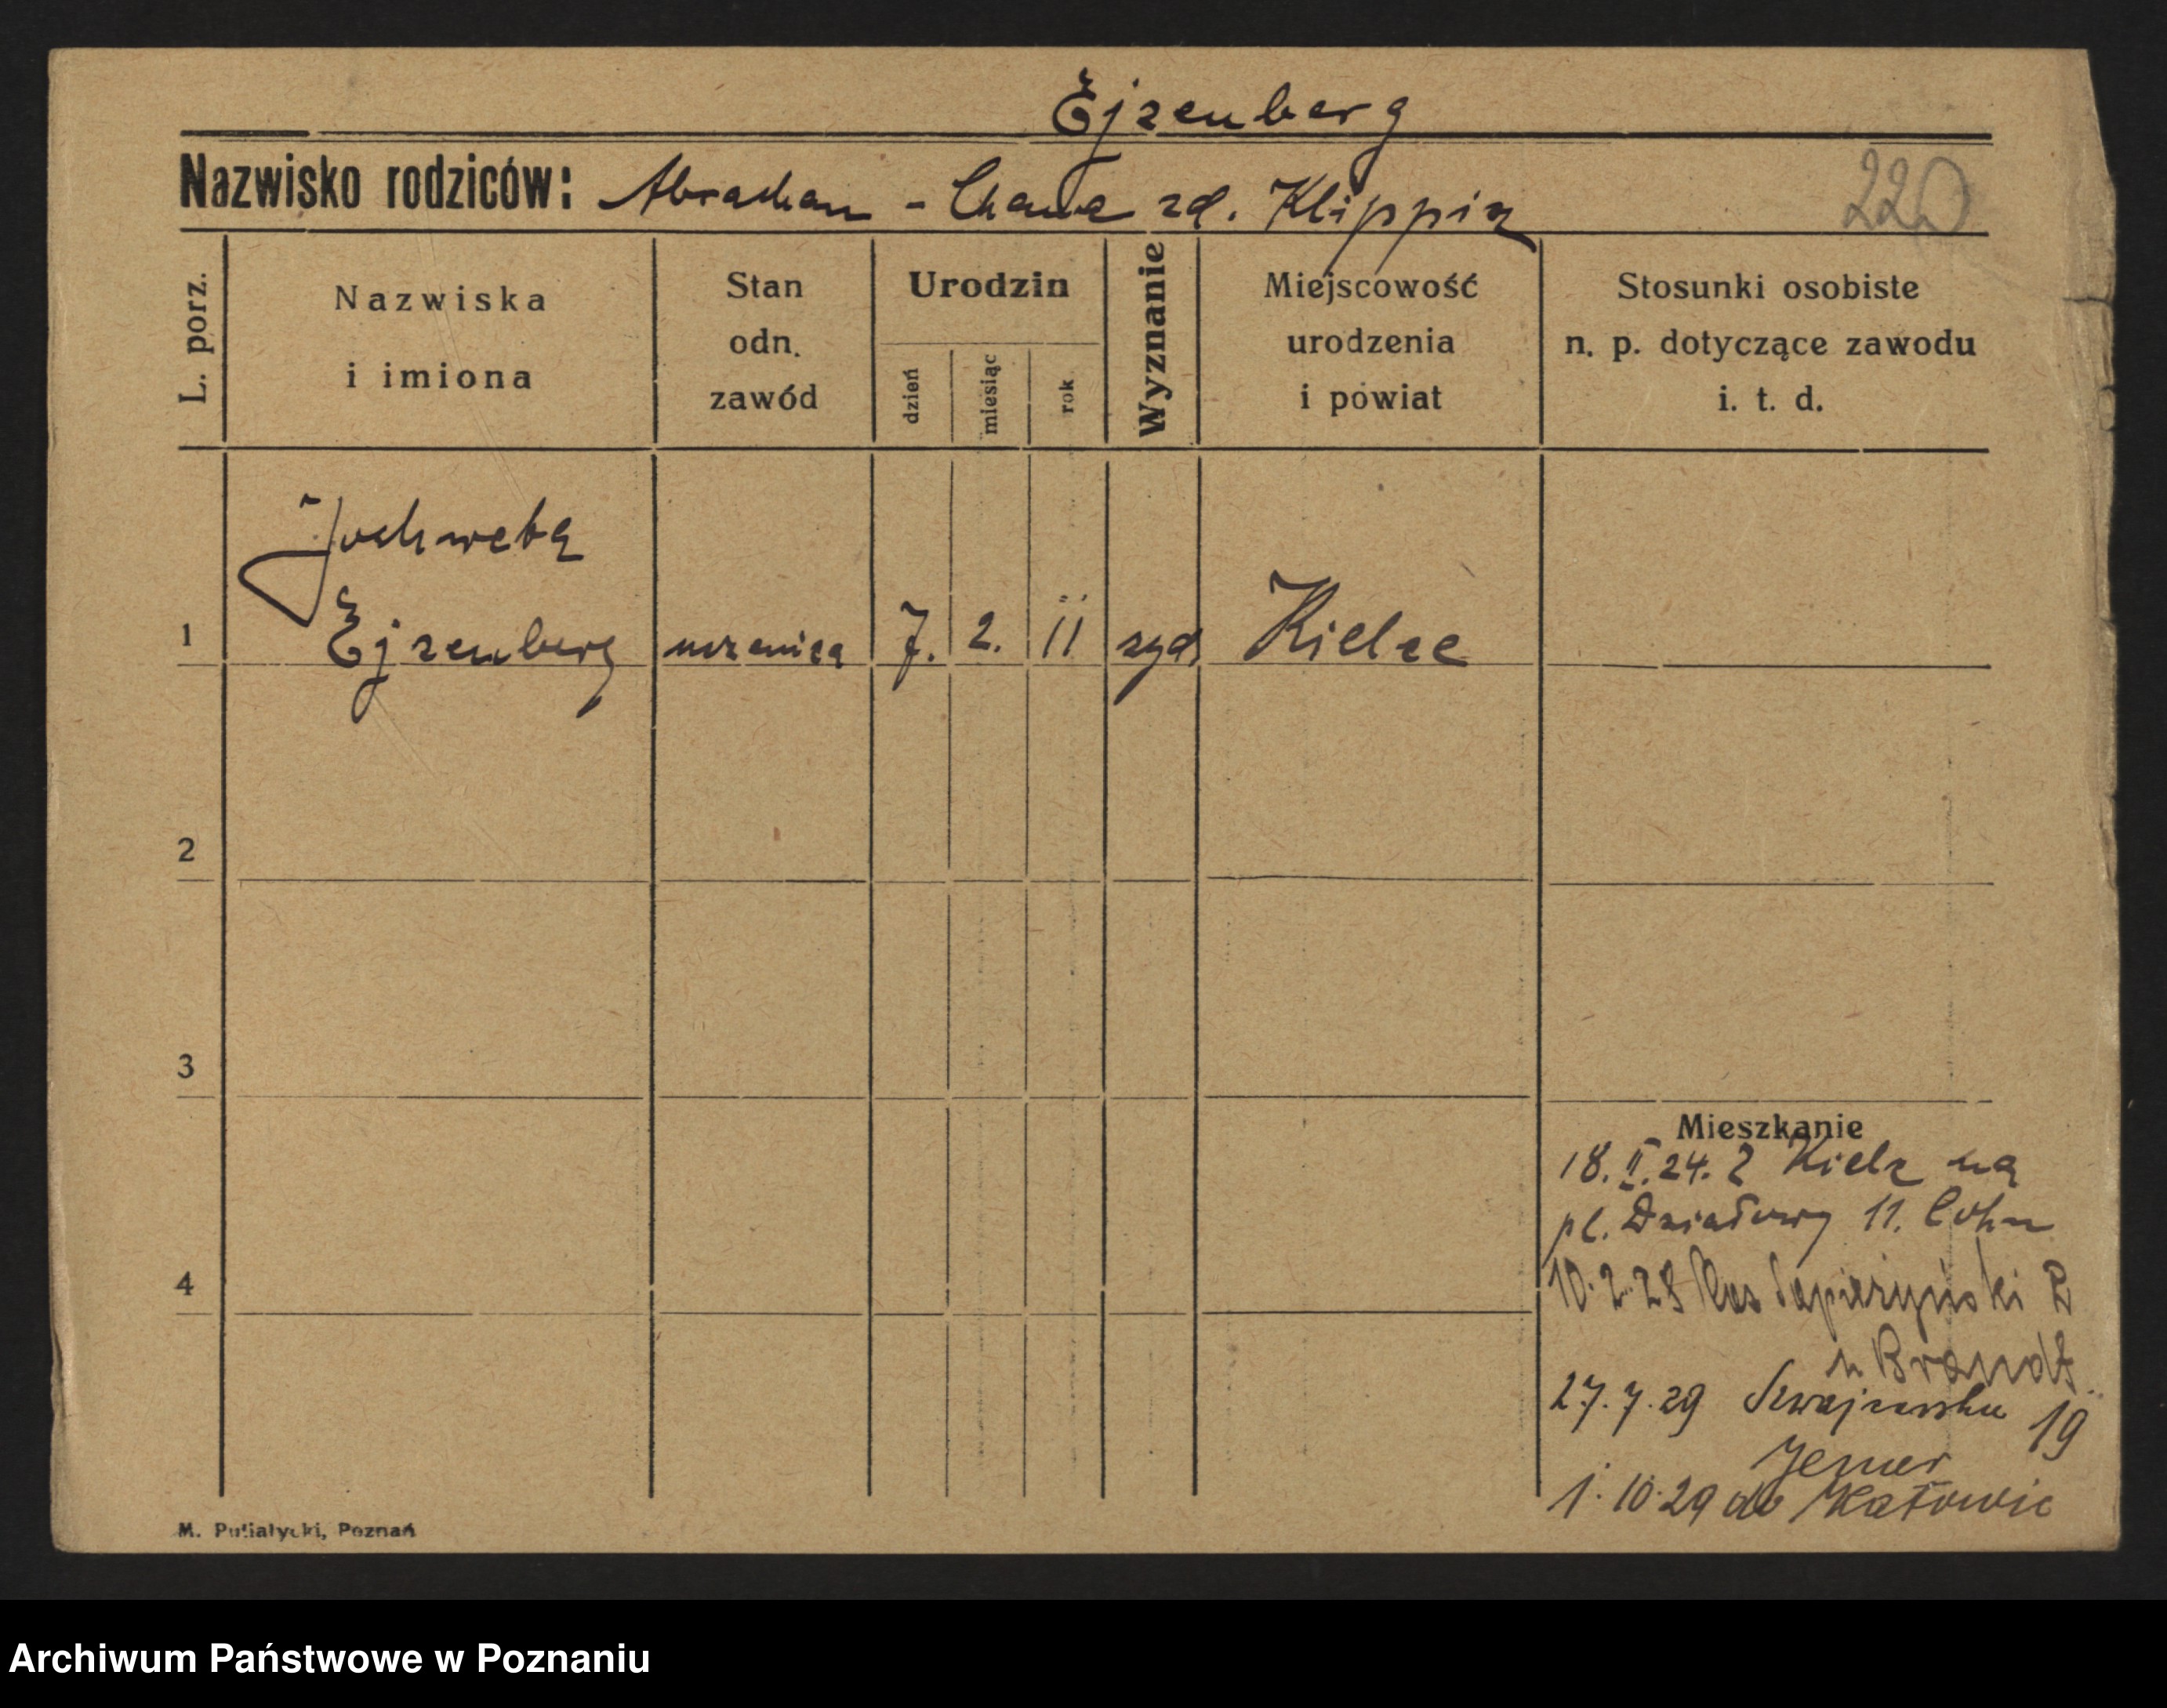 Ejzenberg
Nazwisko rodziców: Abraham - Chawa zd. Klippin
220
L. porz.
Nazwiska
i imiona
Stan
odn.
zawód
Urodzin
dzień
miesiąc
rok
Wyznanie
Miejscowość
urodzenia
i powiat
Stosunki osobiste
n. p. dotyczące zawodu
i. t. d.
Jochweta
1 Ejzenberg uczenica 7. 2. 11 żyd. Kielce
2
3
4
Mieszkanie
18.II.24. z Kielc na
pl. Działowy 11. Cohn
10.2.28 Sapieżyński 2
u Brandt
27.7.29 Szwajcarska 19
1.10.29 do Katowic
M. Putiatycki, Poznań
Archiwum Państwowe w Poznaniu